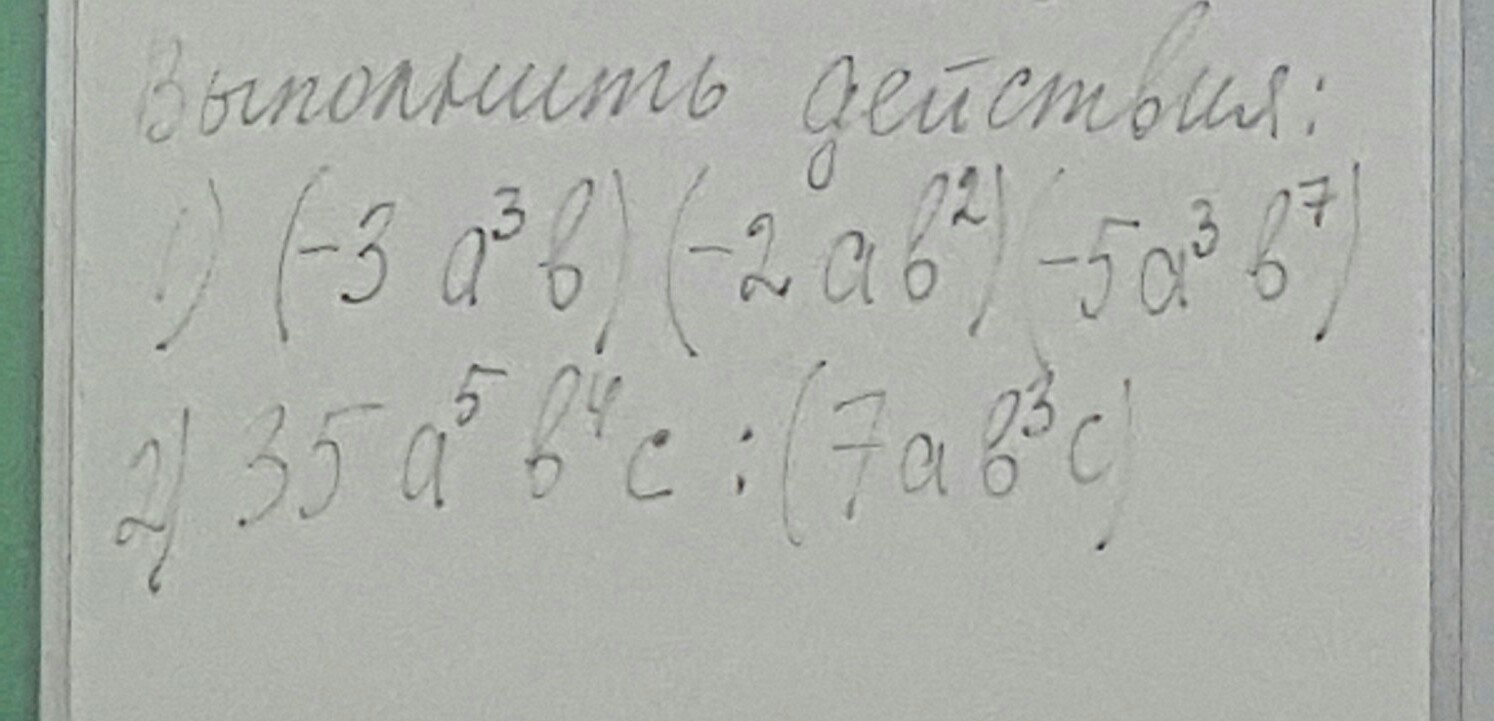 Выполнить действия:
1) (-3 a³ b) (-2 a b²) (-5a³ b⁷)
2) 35 a⁵ b⁴ c : (7 a b³ c)